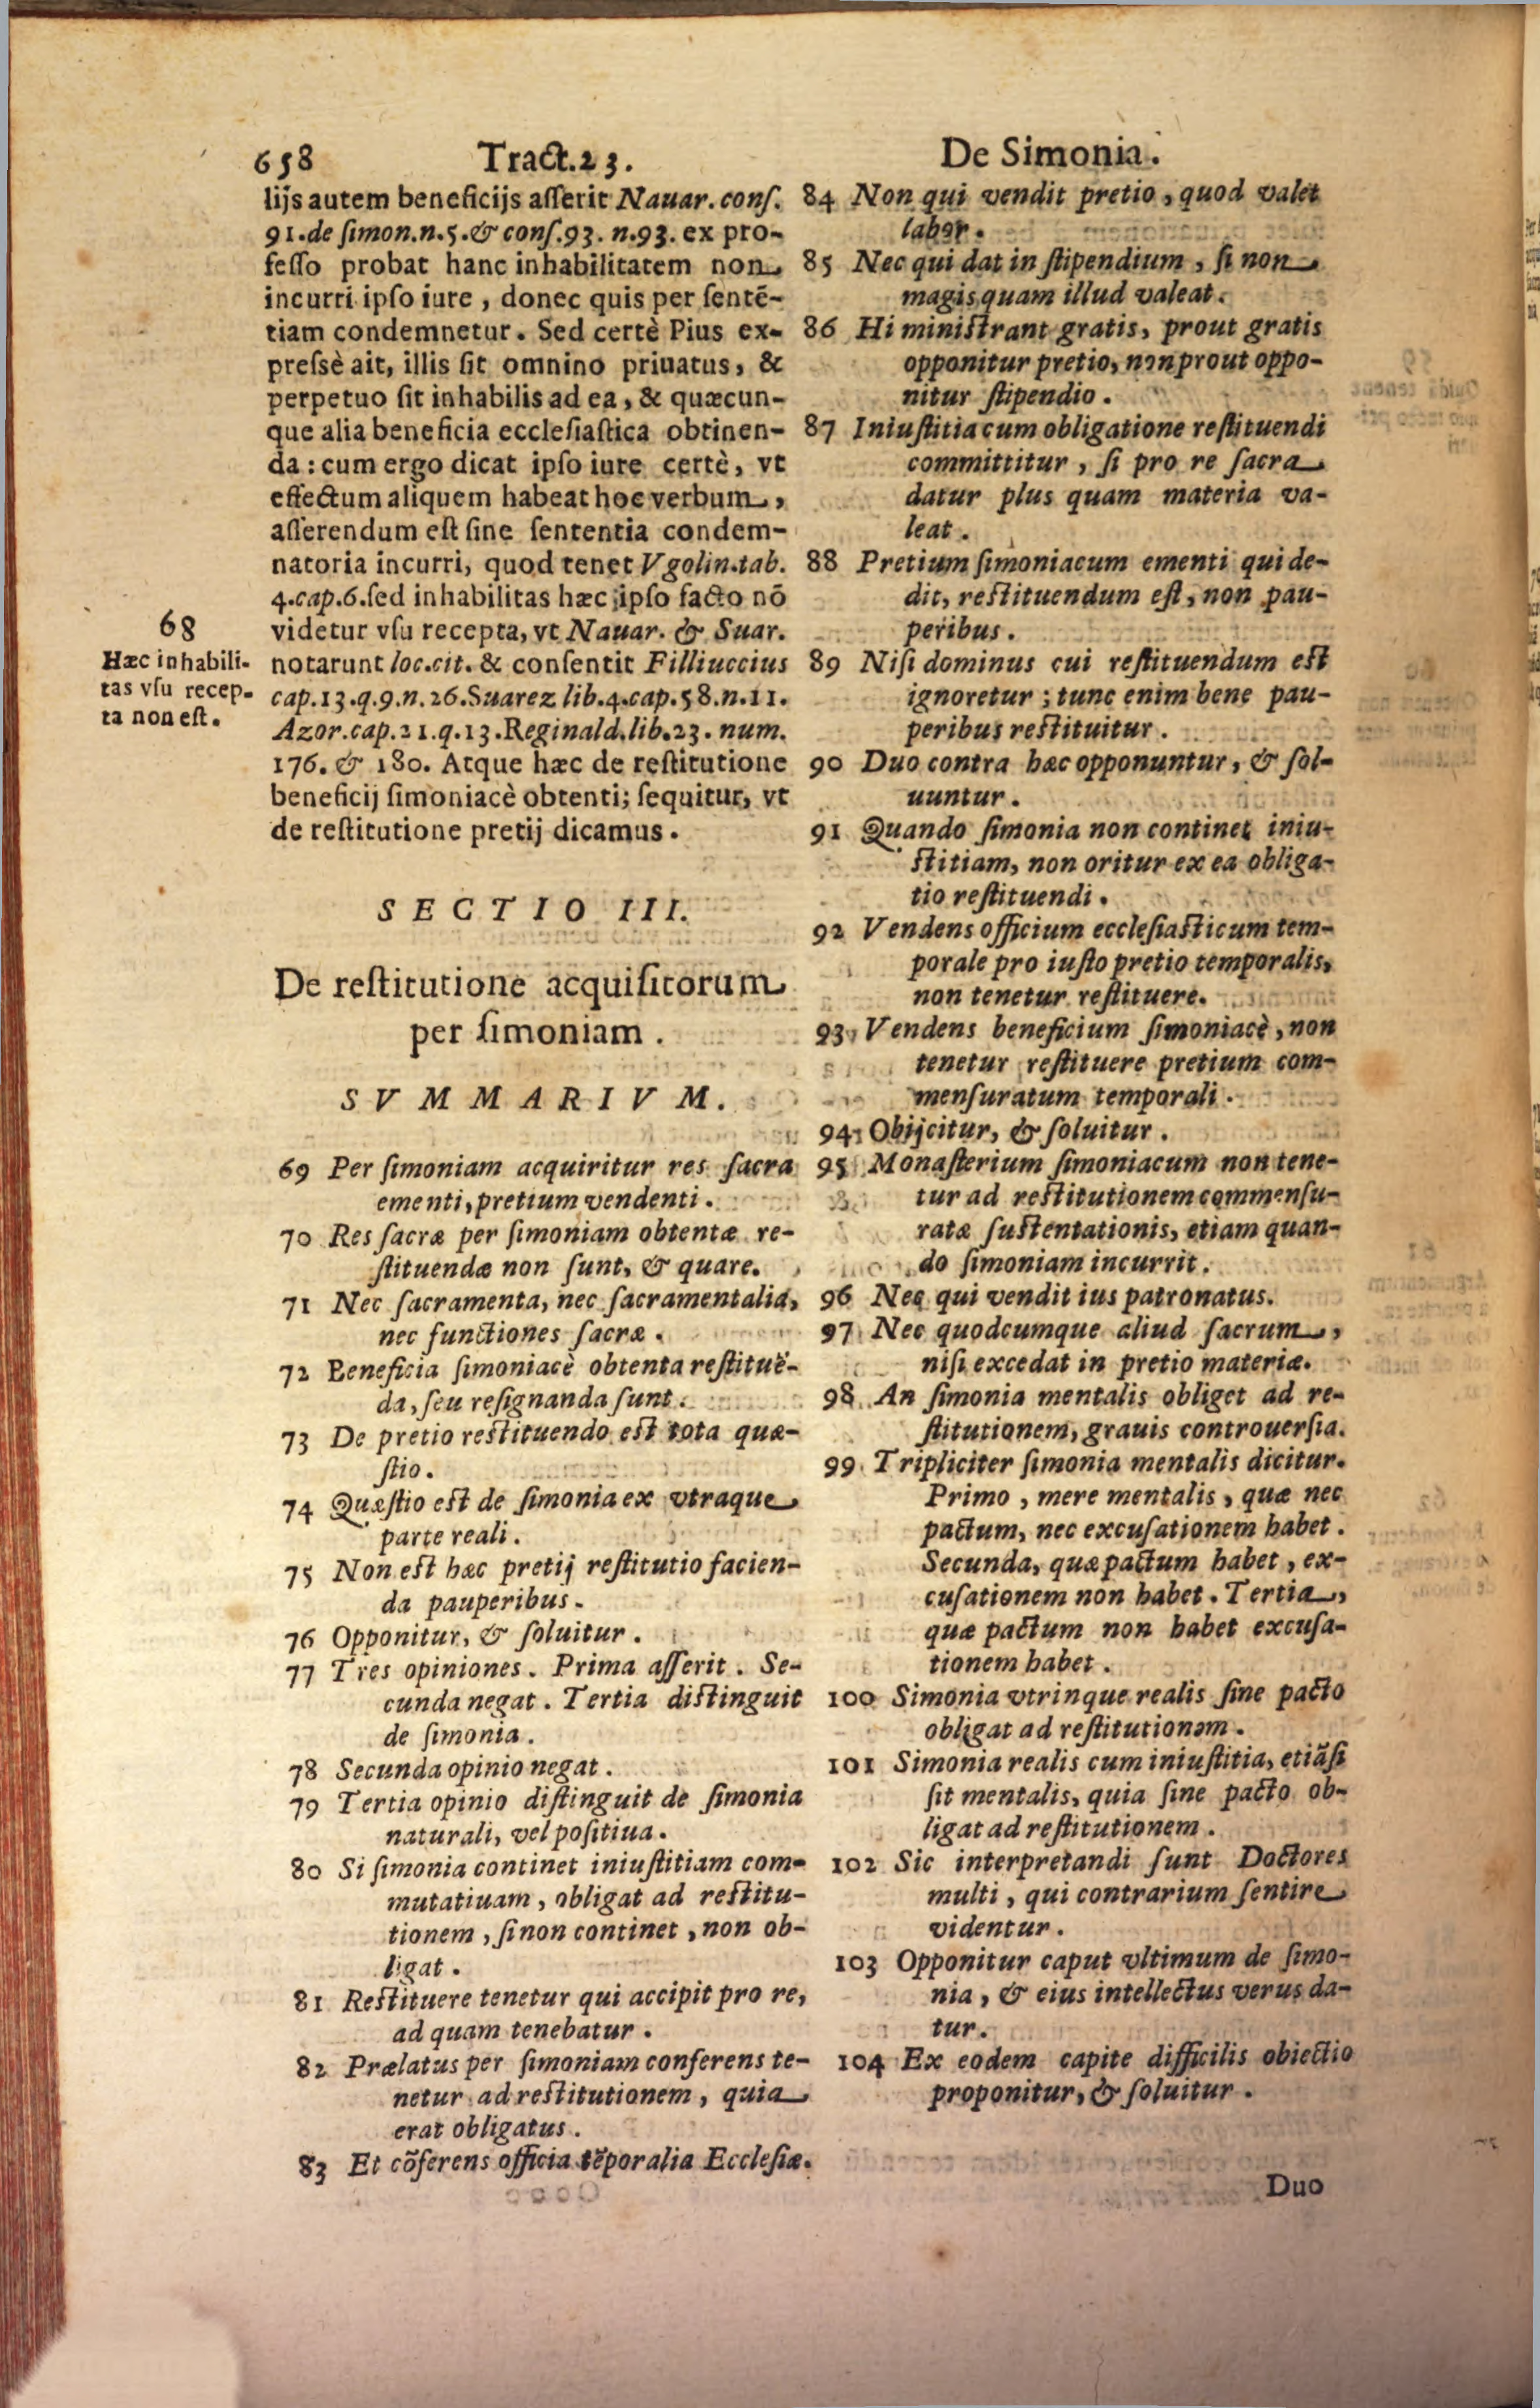 658 Tract.23. De Simonia.
lijs autem beneficijs aſſerit Nauar. conſ.
91.de ſimon.n.5.& conſ.93. n.93. ex pro-
feſſo probat hanc inhabilitatem non
incurri ipſo iure, donec quis per ſentē-
tiam condemnetur. Sed certè Pius ex-
preſsè ait, illis ſit omnino priuatus, &
perpetuo ſit inhabilis ad ea, & quæcun-
que alia beneficia eccleſiaſtica obtinen-
da: cum ergo dicat ipſo iure certè, vt
effectum aliquem habeat hoc verbum,
aſſerendum eſt ſine ſententia condem-
natoria incurri, quod tenet Vgolin.tab.
4.cap.6.ſed inhabilitas hæc ipſo facto nō
videtur vſu recepta, vt Nauar. & Suar.
notarunt loc.cit. & conſentit Filliuccius
cap.13.q.9.n.26.Suarez lib.4.cap.58.n.11.
Azor.cap.21.q.13.Reginald.lib.23. num.
176. & 180. Atque hæc de reſtitutione
beneficij ſimoniacè obtenti; ſequitur, vt
de reſtitutione pretij dicamus.
68
Hæc inhabili-
tas vſu recep-
ta non eſt.
SECTIO III.
De reſtitutione acquiſitorum
per ſimoniam.
SVMMARIVM.
69 Per ſimoniam acquiritur res ſacra
ementi, pretium vendenti.
70 Res ſacræ per ſimoniam obtentæ re-
ſtituendæ non ſunt, & quare.
71 Nec ſacramenta, nec ſacramentalia,
nec functiones ſacræ.
72 Beneficia ſimoniacè obtenta reſtituē-
da, ſeu reſignanda ſunt.
73 De pretio reſtituendo eſt tota quæ-
ſtio.
74 Quæſtio eſt de ſimonia ex vtraque
parte reali.
75 Non eſt hæc pretij reſtitutio facien-
da pauperibus.
76 Opponitur, & ſoluitur.
77 Tres opiniones. Prima aſſerit. Se-
cunda negat. Tertia diſtinguit
de ſimonia.
78 Secunda opinio negat.
79 Tertia opinio diſtinguit de ſimonia
naturali, vel poſitiua.
80 Si ſimonia continet iniuſtitiam com-
mutatiuam, obligat ad reſtitu-
tionem, ſi non continet, non ob-
ligat.
81 Reſtituere tenetur qui accipit pro re,
ad quam tenebatur.
82 Prælatus per ſimoniam conferens te-
netur ad reſtitutionem, quia
erat obligatus.
83 Et cōferens officia tēporalia Eccleſiæ.
84 Non qui vendit pretio, quod valet
labor.
85 Nec qui dat in ſtipendium, ſi non
magis quam illud valeat.
86 Hi miniſtrant gratis, prout gratis
opponitur pretio, non prout oppo-
nitur ſtipendio.
87 Iniuſtitia cum obligatione reſtituendi
committitur, ſi pro re ſacra
datur plus quam materia va-
leat.
88 Pretium ſimoniacum ementi qui de-
dit, reſtituendum eſt, non pau-
peribus.
89 Niſi dominus cui reſtituendum eſt
ignoretur; tunc enim bene pau-
peribus reſtituitur.
90 Duo contra hæc opponuntur, & ſol-
uuntur.
91 Quando ſimonia non continet iniu-
ſtitiam, non oritur ex ea obliga-
tio reſtituendi.
92 Vendens officium eccleſiaſticum tem-
porale pro iuſto pretio temporalis,
non tenetur reſtituere.
93 Vendens beneficium ſimoniacè, non
tenetur reſtituere pretium com-
menſuratum temporali.
94 Obijcitur, & ſoluitur.
95 Monaſterium ſimoniacum non tene-
tur ad reſtitutionem commenſu-
ratæ ſuſtentationis, etiam quan-
do ſimoniam incurrit.
96 Nec qui vendit ius patronatus.
97 Nec quodcumque aliud ſacrum,
niſi excedat in pretio materiæ.
98 An ſimonia mentalis obliget ad re-
ſtitutionem, grauis controuerſia.
99 Tripliciter ſimonia mentalis dicitur.
Primo, mere mentalis, quæ nec
pactum, nec excuſationem habet.
Secunda, quæ pactum habet, ex-
cuſationem non habet. Tertia,
quæ pactum non habet excuſa-
tionem habet.
100 Simonia vtrinque realis ſine pacto
obligat ad reſtitutionem.
101 Simonia realis cum iniuſtitia, etiāſi
ſit mentalis, quia ſine pacto ob-
ligat ad reſtitutionem.
102 Sic interpretandi ſunt Doctores
multi, qui contrarium ſentire
videntur.
103 Opponitur caput vltimum de ſimo-
nia, & eius intellectus verus da-
tur.
104 Ex eodem capite difficilis obiectio
proponitur, & ſoluitur.
Duo